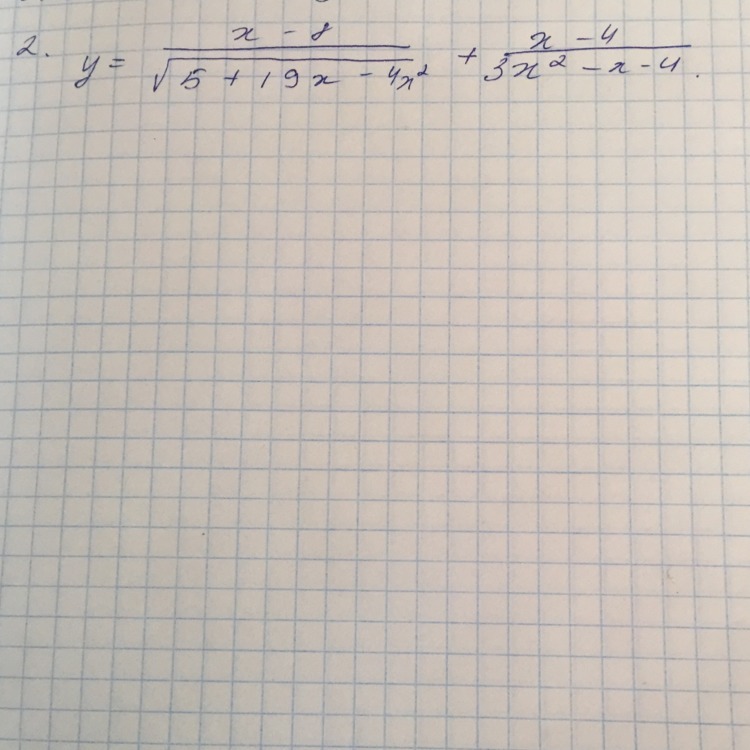 2. y = \frac{x - 8}{\sqrt{5 + 19x - 4x^2}} + \frac{x - 4}{3x^2 - x - 4}.